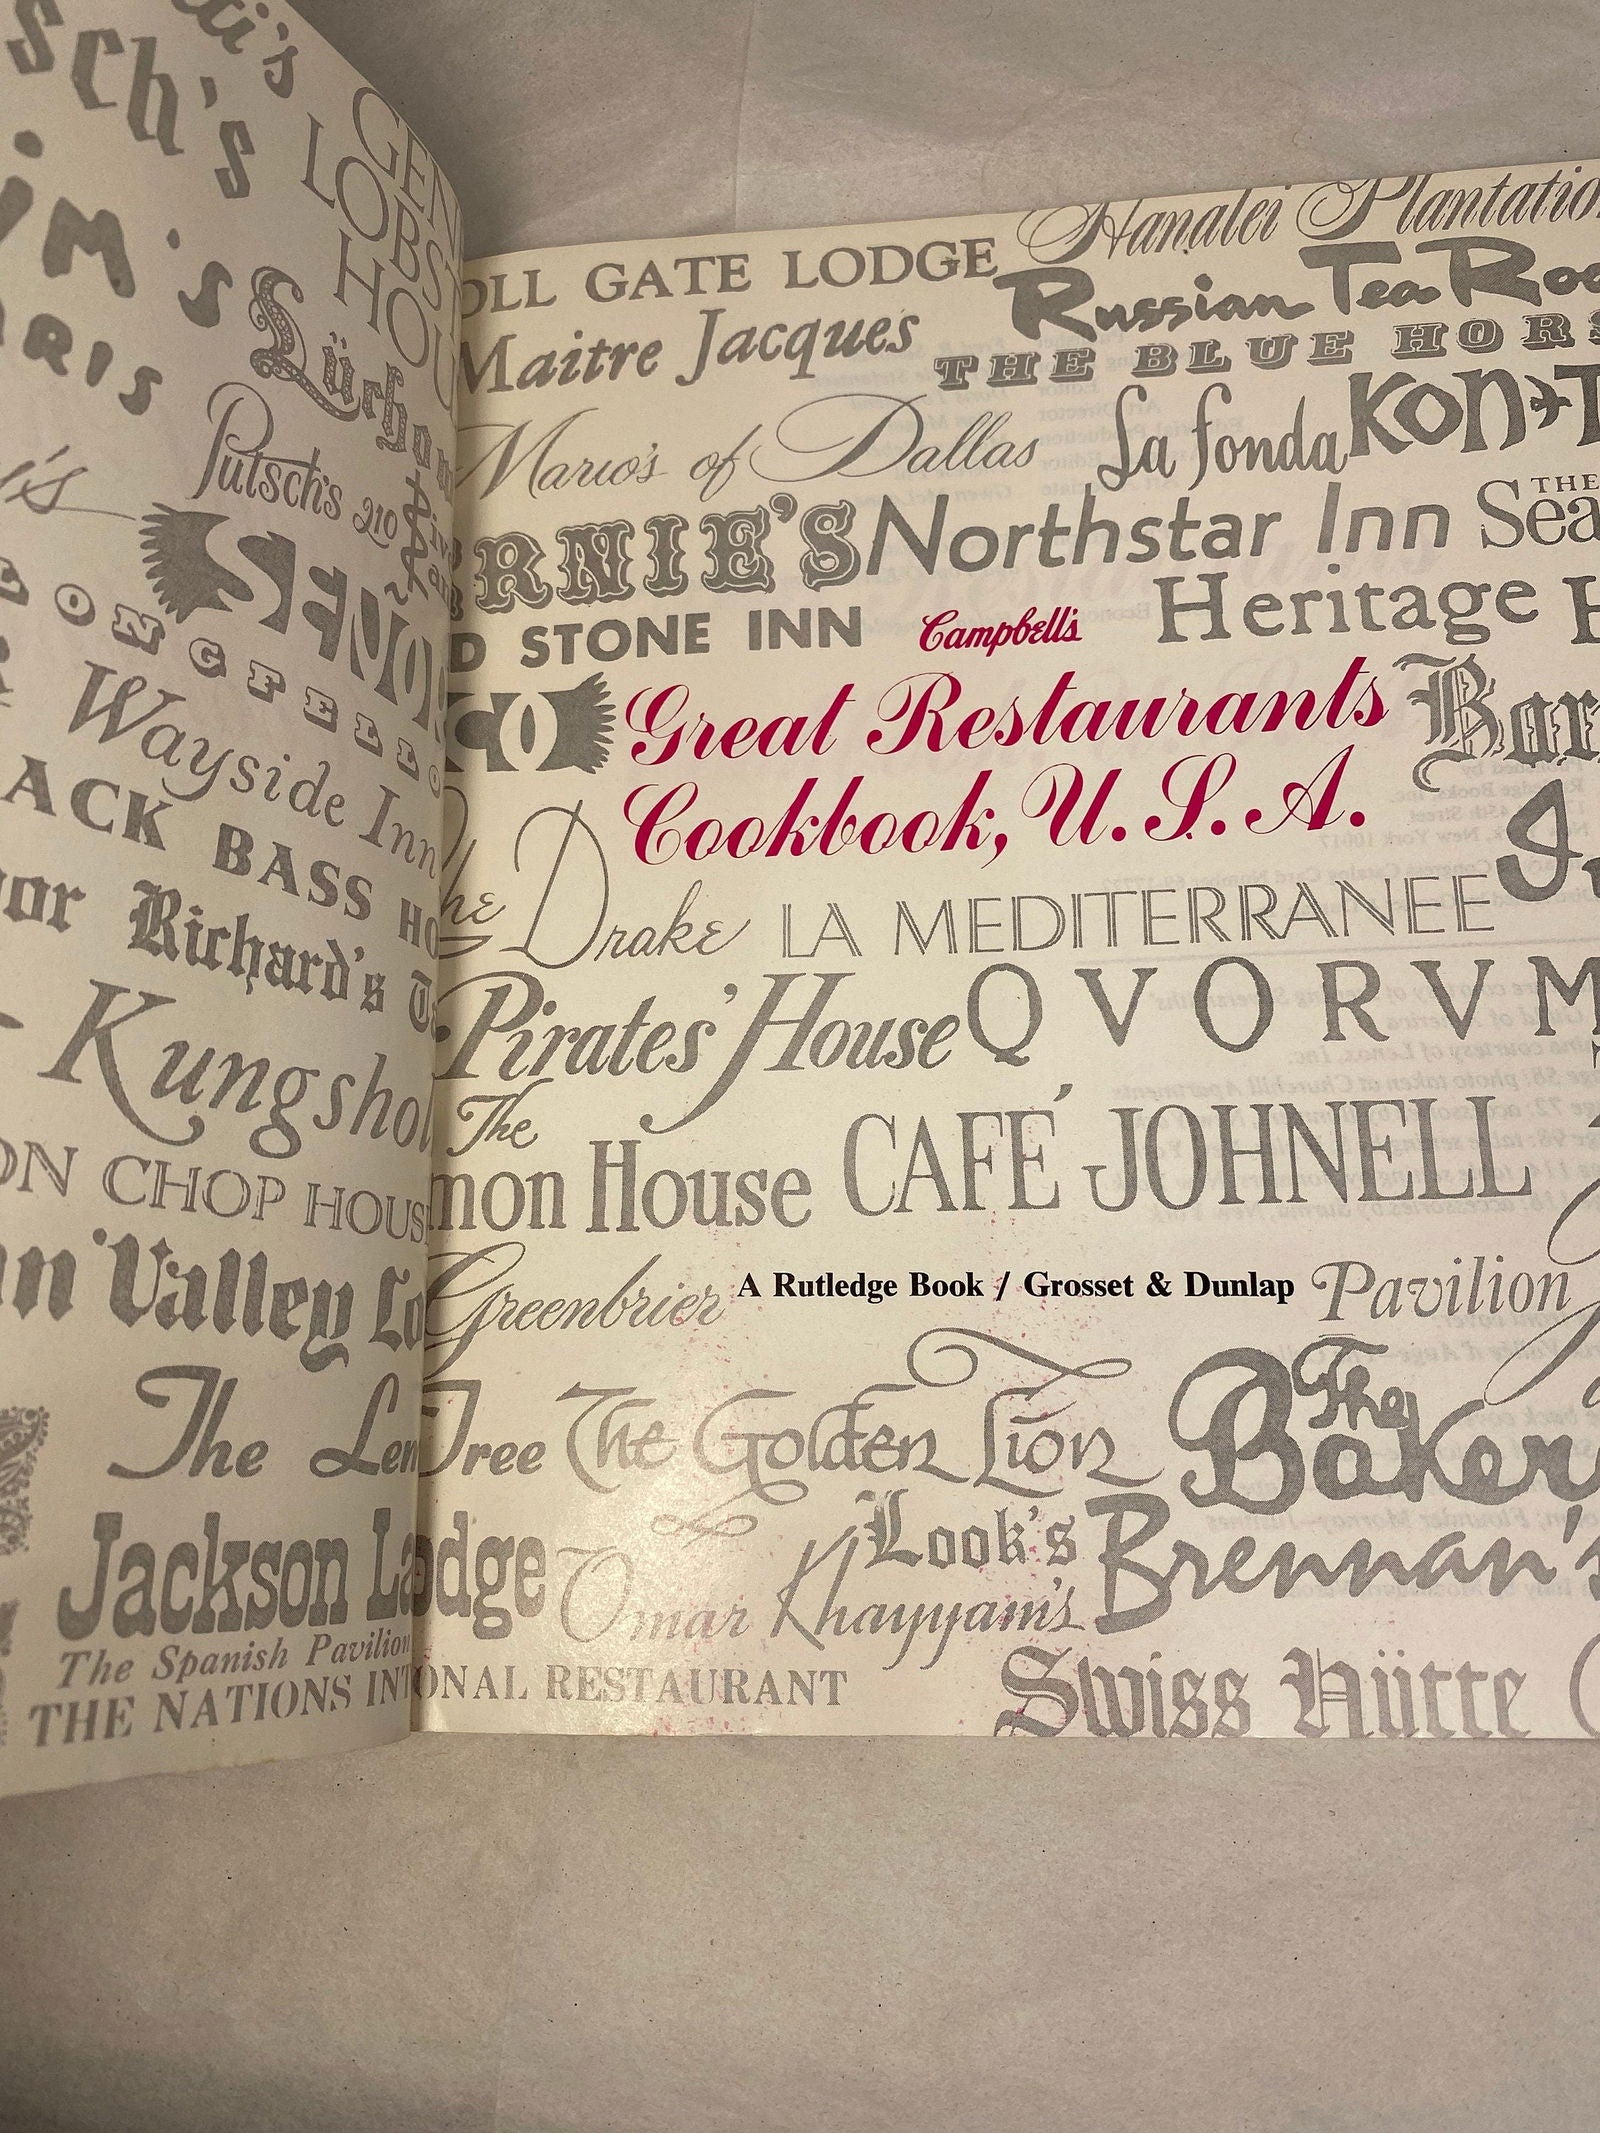 GEN
LOBST
HOU
Lüchow
Putsch's 210
SEÑOR
LONGFELLO
Wayside Inn
ACK BASS HO
Richard's
Kungshol
ON CHOP HOUS
Valley Lo
The Lem
Jackson Lo
The Spanish Pavilion
THE NATIONS INT
OLL GATE LODGE
Hanalei Plantation
Maitre Jacques
Russian Tea Roo
THE BLUE HORS
Mario's of Dallas
La fonda
KON-T
RNIE'S
Northstar Inn
THE
Sea
D STONE INN
Campbell's
Heritage H
ICO
Great Restaurants
Cookbook, U.S.A.
Bar
The Drake
LA MEDITERRANEE
Pirates' House
QVORVM
The
mon House
CAFÉ JOHNELL
Greenbrier
A Rutledge Book / Grosset & Dunlap
Pavilion
Tree
The Golden Lion
The
Baker
dge
Omar Khayyam's
Look's
Brennan's
ONAL RESTAURANT
Swiss Hütte